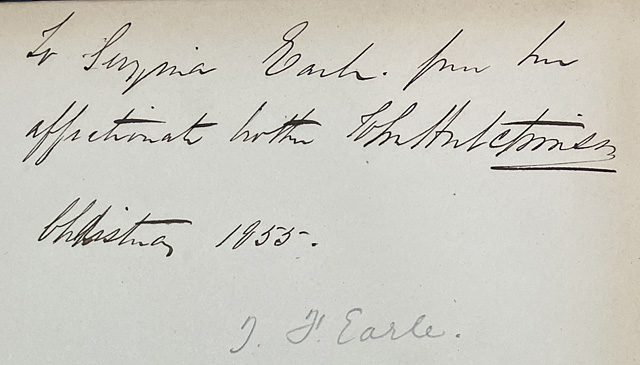 To Earle. from her
affectionate brother Hutchinson
Christmas 1855.
J. F. Earle.